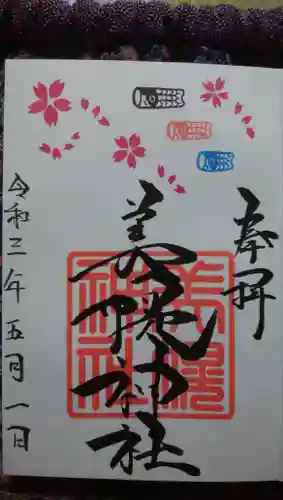 奉拝
美幌神社
美幌
神社
令和三年五月一日